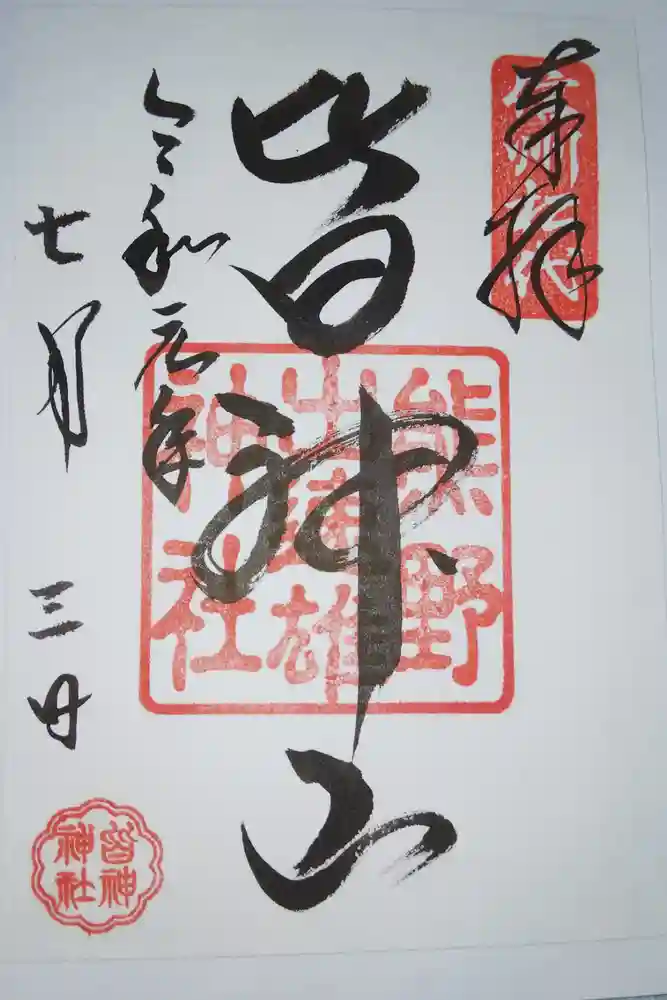 奉拝
皆神山
熊野
出速雄
神社
令和元年
七月三日
皆神
神社